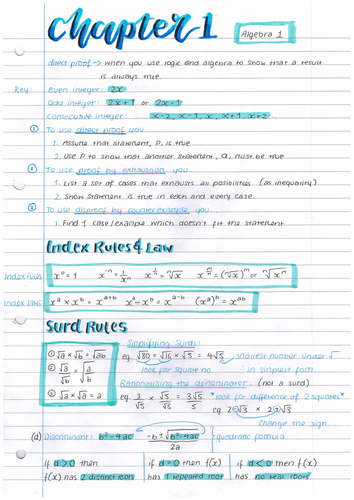 Chapter 1
Algebra 1
direct proof → when you use logic and algebra to show that a result
is always true.
Key: Even integer: 2x
Odd integer: 2x+1 or 2x-1
Consecutive integer: x-2, x-1, x, x+1, x+2
① To use direct proof you
1. Assume that statement, P, is true
2. Use P to show that another statement, Q, must be true
② To use proof by exhaustion you
1. List a set of cases that exhausts all posibilities (as inequality)
2. Show statement is true in each and every case.
③ To use disproof by counter example, you
1. Find 1 case/example which doesn't fit the statement
Index Rules & Law
Index rules x⁰ = 1 x⁻ⁿ = 1/xⁿ x^(1/n) = ⁿ√x x^(m/n) = (ⁿ√x)^m or ⁿ√x^m
Index laws xᵃ × xᵇ = xᵃ⁺ᵇ xᵃ ÷ xᵇ = xᵃ⁻ᵇ (xᵃ)ᵇ = xᵃᵇ
Surd Rules
① √a × √b = √ab
② √a/√b = √(a/b)
③ √a × √a = a
Simplifying Surds:
eg. √80 = √16 × √5 = 4√5 smallest number under √
look for square no. in simplest form
Rationalising the denominator: (not a surd)
eg. 3/√5 × √5/√5 = 3√5/5 *look for difference of 2 squares*
Change the sign.
(d) Discriminant: b²-4ac (-b±√(b²-4ac))/2a quadratic formula
If d>0 then
f(x) has 2 distinct roots
if d=0 then f(x)
has 1 repeated root
if d<0 then f(x)
has no real roots